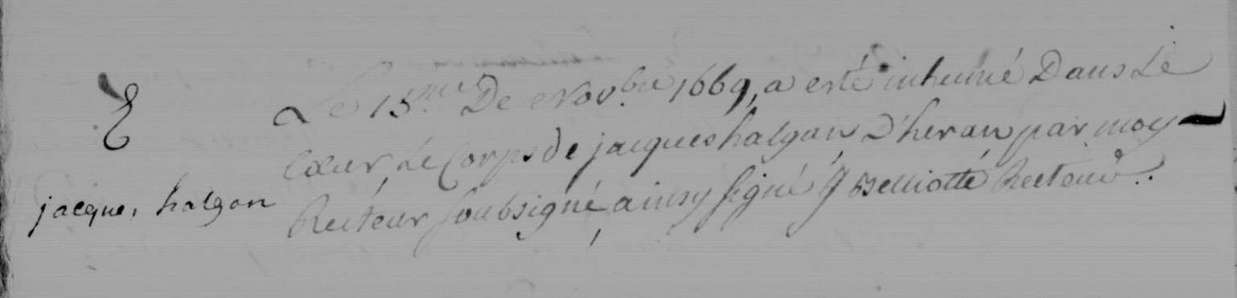 E
jacques halgan
Le 15.me De Novbre 1669, a esté inhumé Dans Le
Cœur, Le Corps de jacques halgan, D'heran par moy
Recteur soubsigné, ainsy signé J Belliotte Recteur.